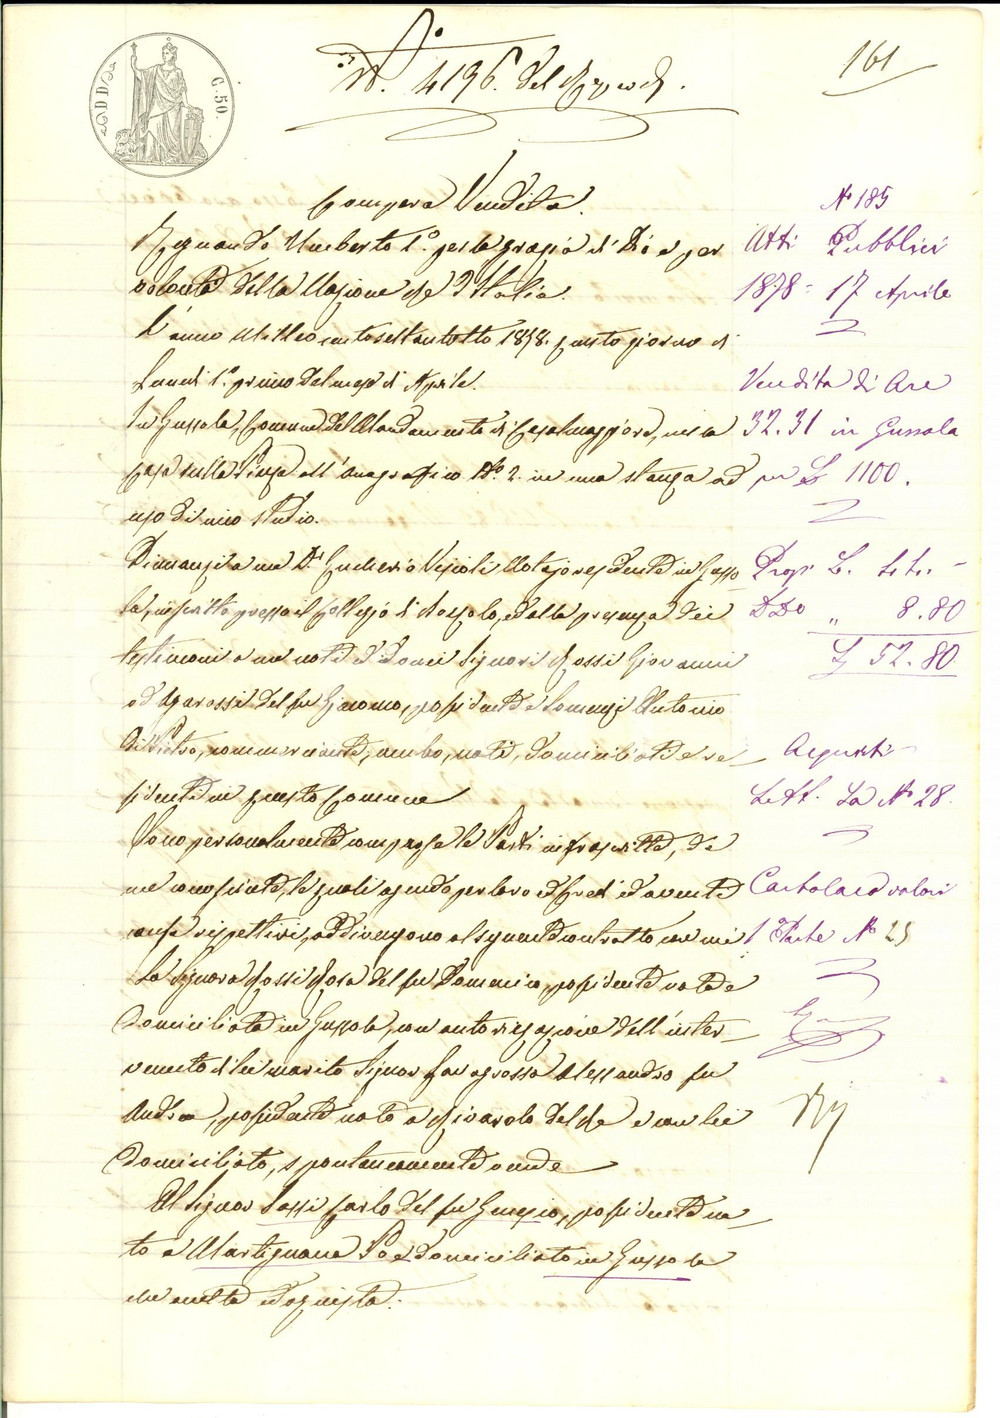 161
N.° 4196. del Repert.
C. 50.
Compera Vendita.
Regnando Umberto 1°. per la grazia di Dio e per
volontà della Nazione Re d'Italia.
L'anno Milleottocentosettantotto 1878. questo giorno di
Lunedì 1°. primo del mese di Aprile.
In Gussola, Comune del Mandamento di Casalmaggiore, nella
casa sulla Piazza all'anagrafico N°. 2. in una stanza ad
uso di mio studio.
Dinnanzi a me Dr. Vescioli Notajo residente in Gusso
la, inscritto presso il Collegio di Bozzolo, ed alla presenza dei
testimonj a me noti ed idonei Signori Rossi Giovanni
del fu Giacomo, possidente e Antonio
di Pietro, commerciante, ambo, nati, domiciliati e re
sidenti in questo Comune
Sono personalmente comparse le Parti infrascritte, da
me conosciute, le quali agendo per loro ed Eredi ed aventi
causa rispettivi, addivengono al seguente contratto con cui
La Signora Rossi Rosa del fu Domenico, possidente nata e
domiciliata in Gussola, con autorizzazione dell'inter
venuto di lei marito Signor Alessandro fu
Andrea, possidente nato a Rivarolo del Re e con lei
domiciliato, spontaneamente vende
Al Signor Sassi Carlo del fu Genesio, possidente na
to a Martignana Po e domiciliato in Gussola
che accetta ed acquista.
N° 185
Atti Pubblici
1878 = 17 Aprile
Vendita di Are
32.31 in Gussola
per £ 1100.
Prop. L. 44. -
DDo " 8.80
£ 52.80
Acquisti
Lett. Sa N° 28.
Cartolaro valori
1 Parte N° 25